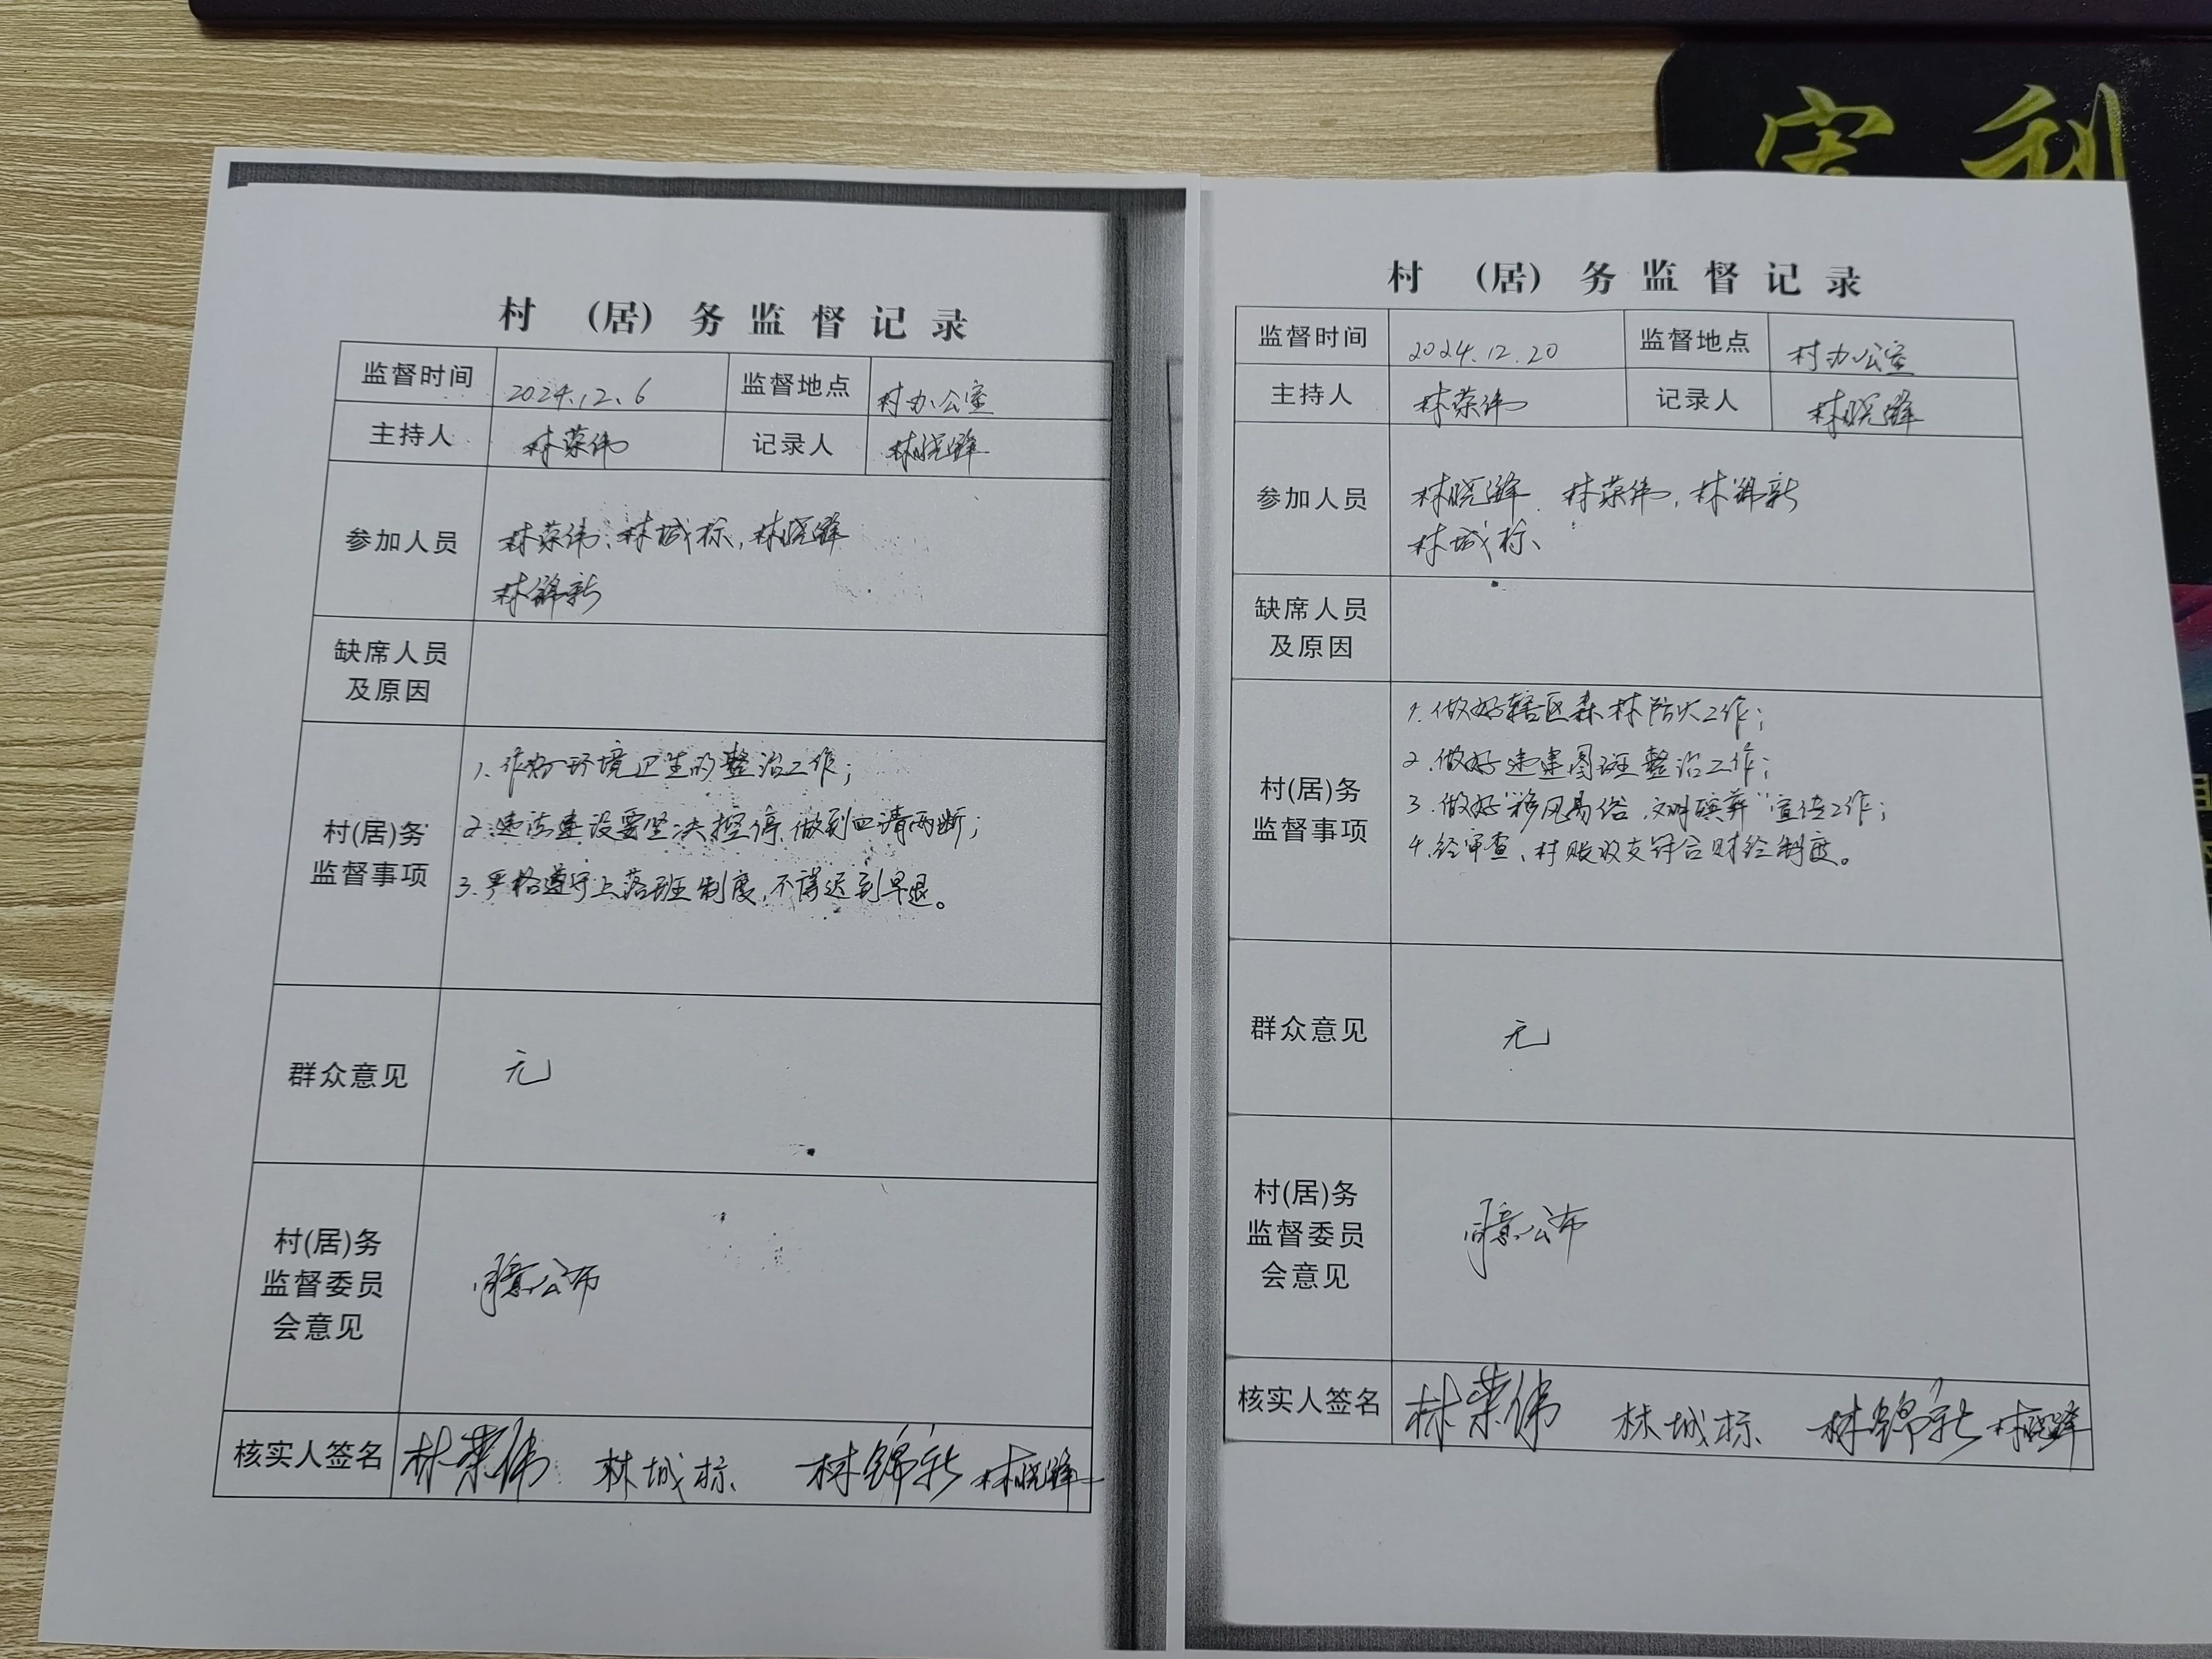 村 （居） 务 监 督 记 录
监督时间 2024.12.6 监督地点 村办公室
主持人 林荣伟 记录人 林晓锋
参加人员 林荣伟、林城标，林晓锋
林锦新
缺席人员
及原因
村(居)务
监督事项
1、作好环境卫生的整治工作；
2、违法建设要坚决控停，做到四清两断；
3、严格遵守上落班制度，不得迟到早退。
群众意见 无
村(居)务
监督委员
会意见
同意公布
核实人签名 林荣伟 林城标 林锦新 林晓锋
村 （居） 务 监 督 记 录
监督时间 2024.12.20 监督地点 村办公室
主持人 林荣伟 记录人 林晓锋
参加人员 林晓锋、林荣伟，林锦新
林城标、
缺席人员
及原因
村(居)务
监督事项
1.做好辖区森林防火工作；
2.做好违建图斑整治工作；
3.做好“移风易俗，文明殡葬”宣传工作；
4.经审查、村账收支符合财经制度。
群众意见 无
村(居)务
监督委员
会意见
同意公布
核实人签名 林荣伟 林城标 林锦新 林晓锋